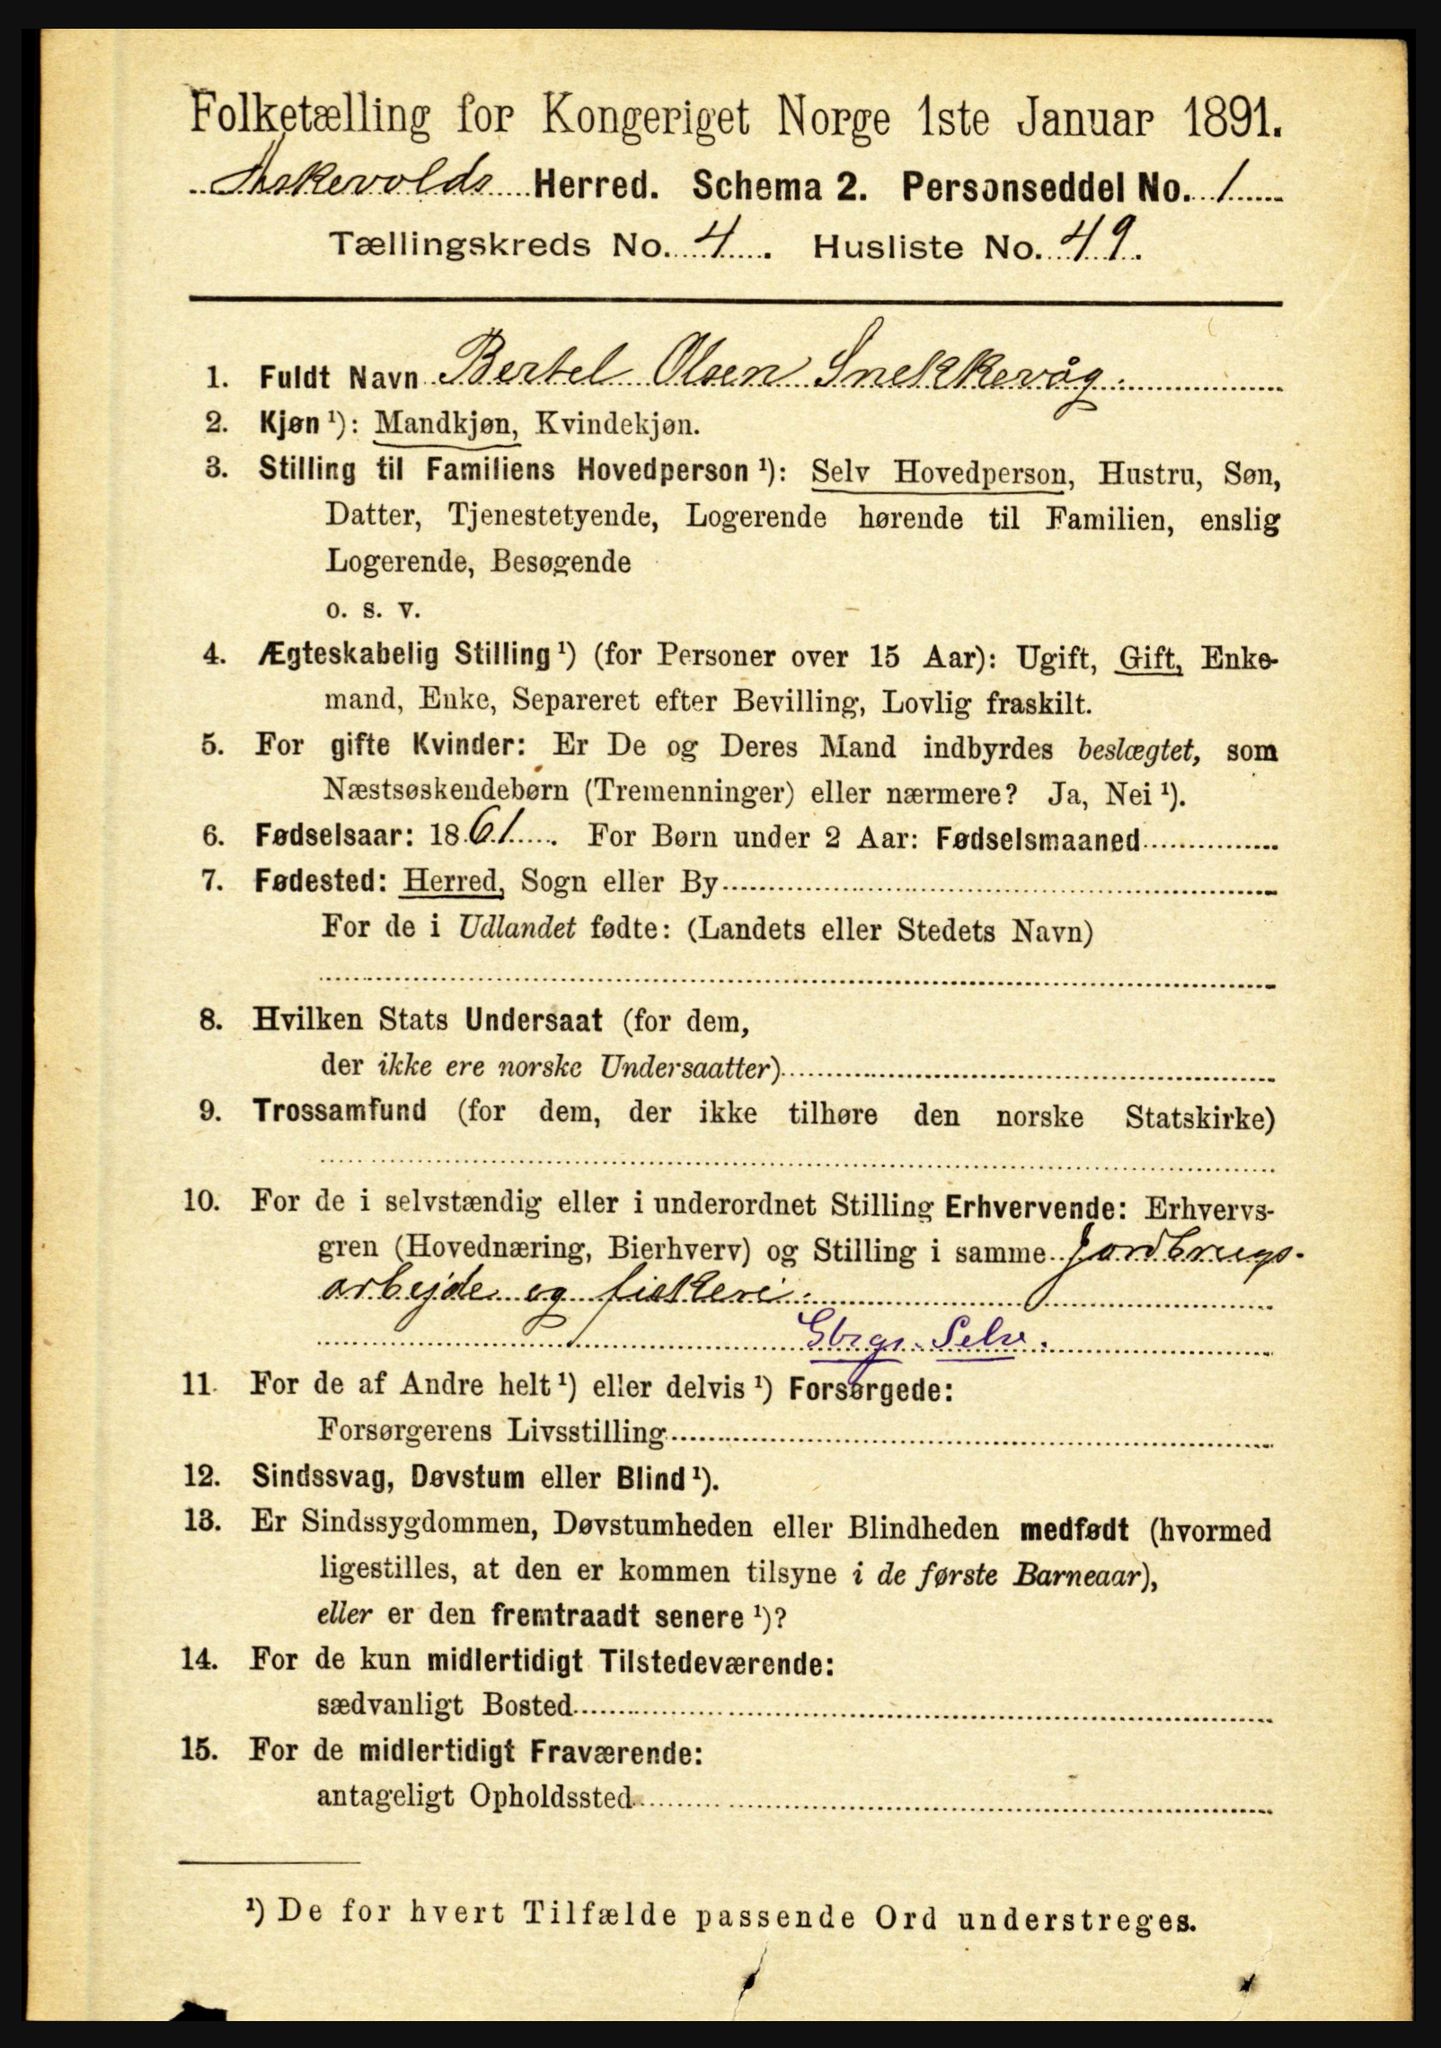 Folketælling for Kongeriget Norge 1ste Januar 1891.
Askevolds Herred. Schema 2. Personseddel No. 1
Tællingskreds No. 4. Husliste No. 49.
1. Fuldt Navn Bertel Olsen Snekkevåg.
2. Kjøn ¹): Mandkjøn, Kvindekjøn.
3. Stilling til Familiens Hovedperson ¹): Selv Hovedperson, Hustru, Søn,
Datter, Tjenestetyende, Logerende hørende til Familien, enslig
Logerende, Besøgende
o. s. v.
4. Ægteskabelig Stilling ¹) (for Personer over 15 Aar): Ugift, Gift, Enke-
mand, Enke, Separeret efter Bevilling, Lovlig fraskilt.
5. For gifte Kvinder: Er De og Deres Mand indbyrdes beslægtet, som
Næstsøskendebørn (Tremenninger) eller nærmere? Ja, Nei ¹).
6. Fødselsaar: 1861. For Børn under 2 Aar: Fødselsmaaned
7. Fødested: Herred, Sogn eller By
For de i Udlandet fødte: (Landets eller Stedets Navn)
8. Hvilken Stats Undersaat (for dem,
der ikke ere norske Undersaatter)
9. Trossamfund (for dem, der ikke tilhøre den norske Statskirke)
10. For de i selvstændig eller i underordnet Stilling Erhvervende: Erhvervs-
gren (Hovednæring, Bierhverv) og Stilling i samme Jordbrugs-
arbejde og fiskeri.
Gbrgs. Selv.
11. For de af Andre helt ¹) eller delvis ¹) Forsørgede:
Forsørgerens Livsstilling
12. Sindssvag, Døvstum eller Blind ¹).
13. Er Sindssygdommen, Døvstumheden eller Blindheden medfødt (hvormed
ligestilles, at den er kommen tilsyne i de første Barneaar),
eller er den fremtraadt senere ¹)?
14. For de kun midlertidigt Tilstedeværende:
sædvanligt Bosted
15. For de midlertidigt Fraværende:
antageligt Opholdssted
¹) De for hvert Tilfælde passende Ord understreges.